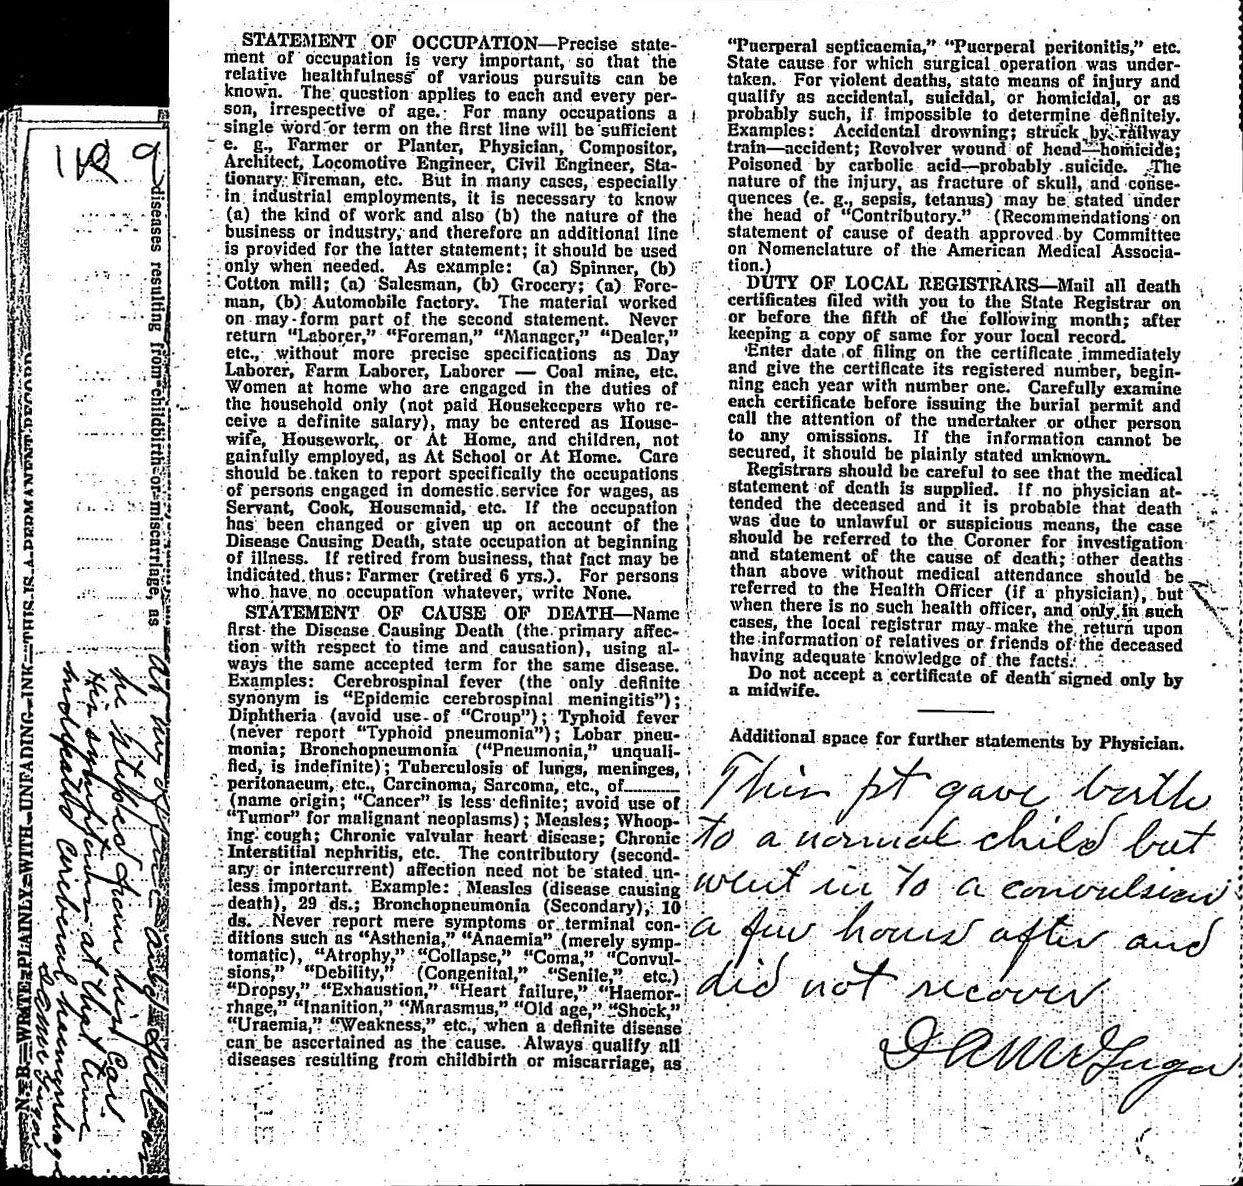 STATEMENT OF OCCUPATION—Precise state-
ment of occupation is very important, so that the
relative healthfulness of various pursuits can be
known. The question applies to each and every per-
son, irrespective of age. For many occupations a
single word or term on the first line will be sufficient
e. g., Farmer or Planter, Physician, Compositor,
Architect, Locomotive Engineer, Civil Engineer, Sta-
tionary Fireman, etc. But in many cases, especially
in industrial employments, it is necessary to know
(a) the kind of work and also (b) the nature of the
business or industry, and therefore an additional line
is provided for the latter statement; it should be used
only when needed. As example: (a) Spinner, (b)
Cotton mill; (a) Salesman, (b) Grocery; (a) Fore-
man, (b) Automobile factory. The material worked
on may form part of the second statement. Never
return "Laborer," "Foreman," "Manager," "Dealer,"
etc., without more precise specifications as Day
Laborer, Farm Laborer, Laborer — Coal mine, etc.
Women at home who are engaged in the duties of
the household only (not paid Housekeepers who re-
ceive a definite salary), may be entered as House-
wife, Housework, or At Home, and children, not
gainfully employed, as At School or At Home. Care
should be taken to report specifically the occupations
of persons engaged in domestic service for wages, as
Servant, Cook, Housemaid, etc. If the occupation
has been changed or given up on account of the
Disease Causing Death, state occupation at beginning
of illness. If retired from business, that fact may be
indicated thus: Farmer (retired 6 yrs.). For persons
who have no occupation whatever, write None.
STATEMENT OF CAUSE OF DEATH—Name
first the Disease Causing Death (the primary affec-
tion with respect to time and causation), using al-
ways the same accepted term for the same disease.
Examples: Cerebrospinal fever (the only definite
synonym is "Epidemic cerebrospinal meningitis");
Diphtheria (avoid use of "Croup"); Typhoid fever
(never report "Typhoid pneumonia"); Lobar pneu-
monia; Bronchopneumonia ("Pneumonia," unquali-
fied, is indefinite); Tuberculosis of lungs, meninges,
peritonaeum, etc., Carcinoma, Sarcoma, etc., of
(name origin; "Cancer" is less definite; avoid use of
"Tumor" for malignant neoplasms); Measles; Whoop-
ing cough; Chronic valvular heart disease; Chronic
Interstitial nephritis, etc. The contributory (second-
ary or intercurrent) affection need not be stated un-
less important. Example: Measles (disease causing
death), 29 ds.; Bronchopneumonia (Secondary), 10
ds. Never report mere symptoms or terminal con-
ditions such as "Asthenia," "Anaemia" (merely symp-
tomatic), "Atrophy," "Collapse," "Coma," "Convul-
sions," "Debility," (Congenital," "Senile," etc.)
"Dropsy," "Exhaustion," "Heart failure," "Haemor-
rhage," "Inanition," "Marasmus," "Old age," "Shock,"
"Uraemia," "Weakness," etc., when a definite disease
can be ascertained as the cause. Always qualify all
diseases resulting from childbirth or miscarriage, as
"Puerperal septicaemia," "Puerperal peritonitis," etc.
State cause for which surgical operation was under-
taken. For violent deaths, state means of injury and
qualify as accidental, suicidal, or homicidal, or as
probably such, if impossible to determine definitely.
Examples: Accidental drowning; struck by railway
train—accident; Revolver wound of head—homicide;
Poisoned by carbolic acid—probably suicide. The
nature of the injury, as fracture of skull, and conse-
quences (e. g., sepsis, tetanus) may be stated under
the head of "Contributory." (Recommendations on
statement of cause of death approved by Committee
on Nomenclature of the American Medical Associa-
tion.)
DUTY OF LOCAL REGISTRARS—Mail all death
certificates filed with you to the State Registrar on
or before the fifth of the following month; after
keeping a copy of same for your local record.
Enter date of filing on the certificate immediately
and give the certificate its registered number, begin-
ning each year with number one. Carefully examine
each certificate before issuing the burial permit and
call the attention of the undertaker or other person
to any omissions. If the information cannot be
secured, it should be plainly stated unknown.
Registrars should be careful to see that the medical
statement of death is supplied. If no physician at-
tended the deceased and it is probable that death
was due to unlawful or suspicious means, the case
should be referred to the Coroner for investigation
and statement of the cause of death; other deaths
than above without medical attendance should be
referred to the Health Officer (if a physician), but
when there is no such health officer, and only in such
cases, the local registrar may make the return upon
the information of relatives or friends of the deceased
having adequate knowledge of the facts.
Do not accept a certificate of death signed only by
a midwife.
Additional space for further statements by Physician.
This pt gave birth
to a normal child but
went in to a convulsion
a few hours after and
did not recover
diseases resulting from childbirth or miscarriage, as
he stepped from his car.
His symptoms at that time
indicated cerebral haemorrhage
N. B.—WRITE PLAINLY WITH UNFADING INK—THIS IS A PERMANENT RECORD